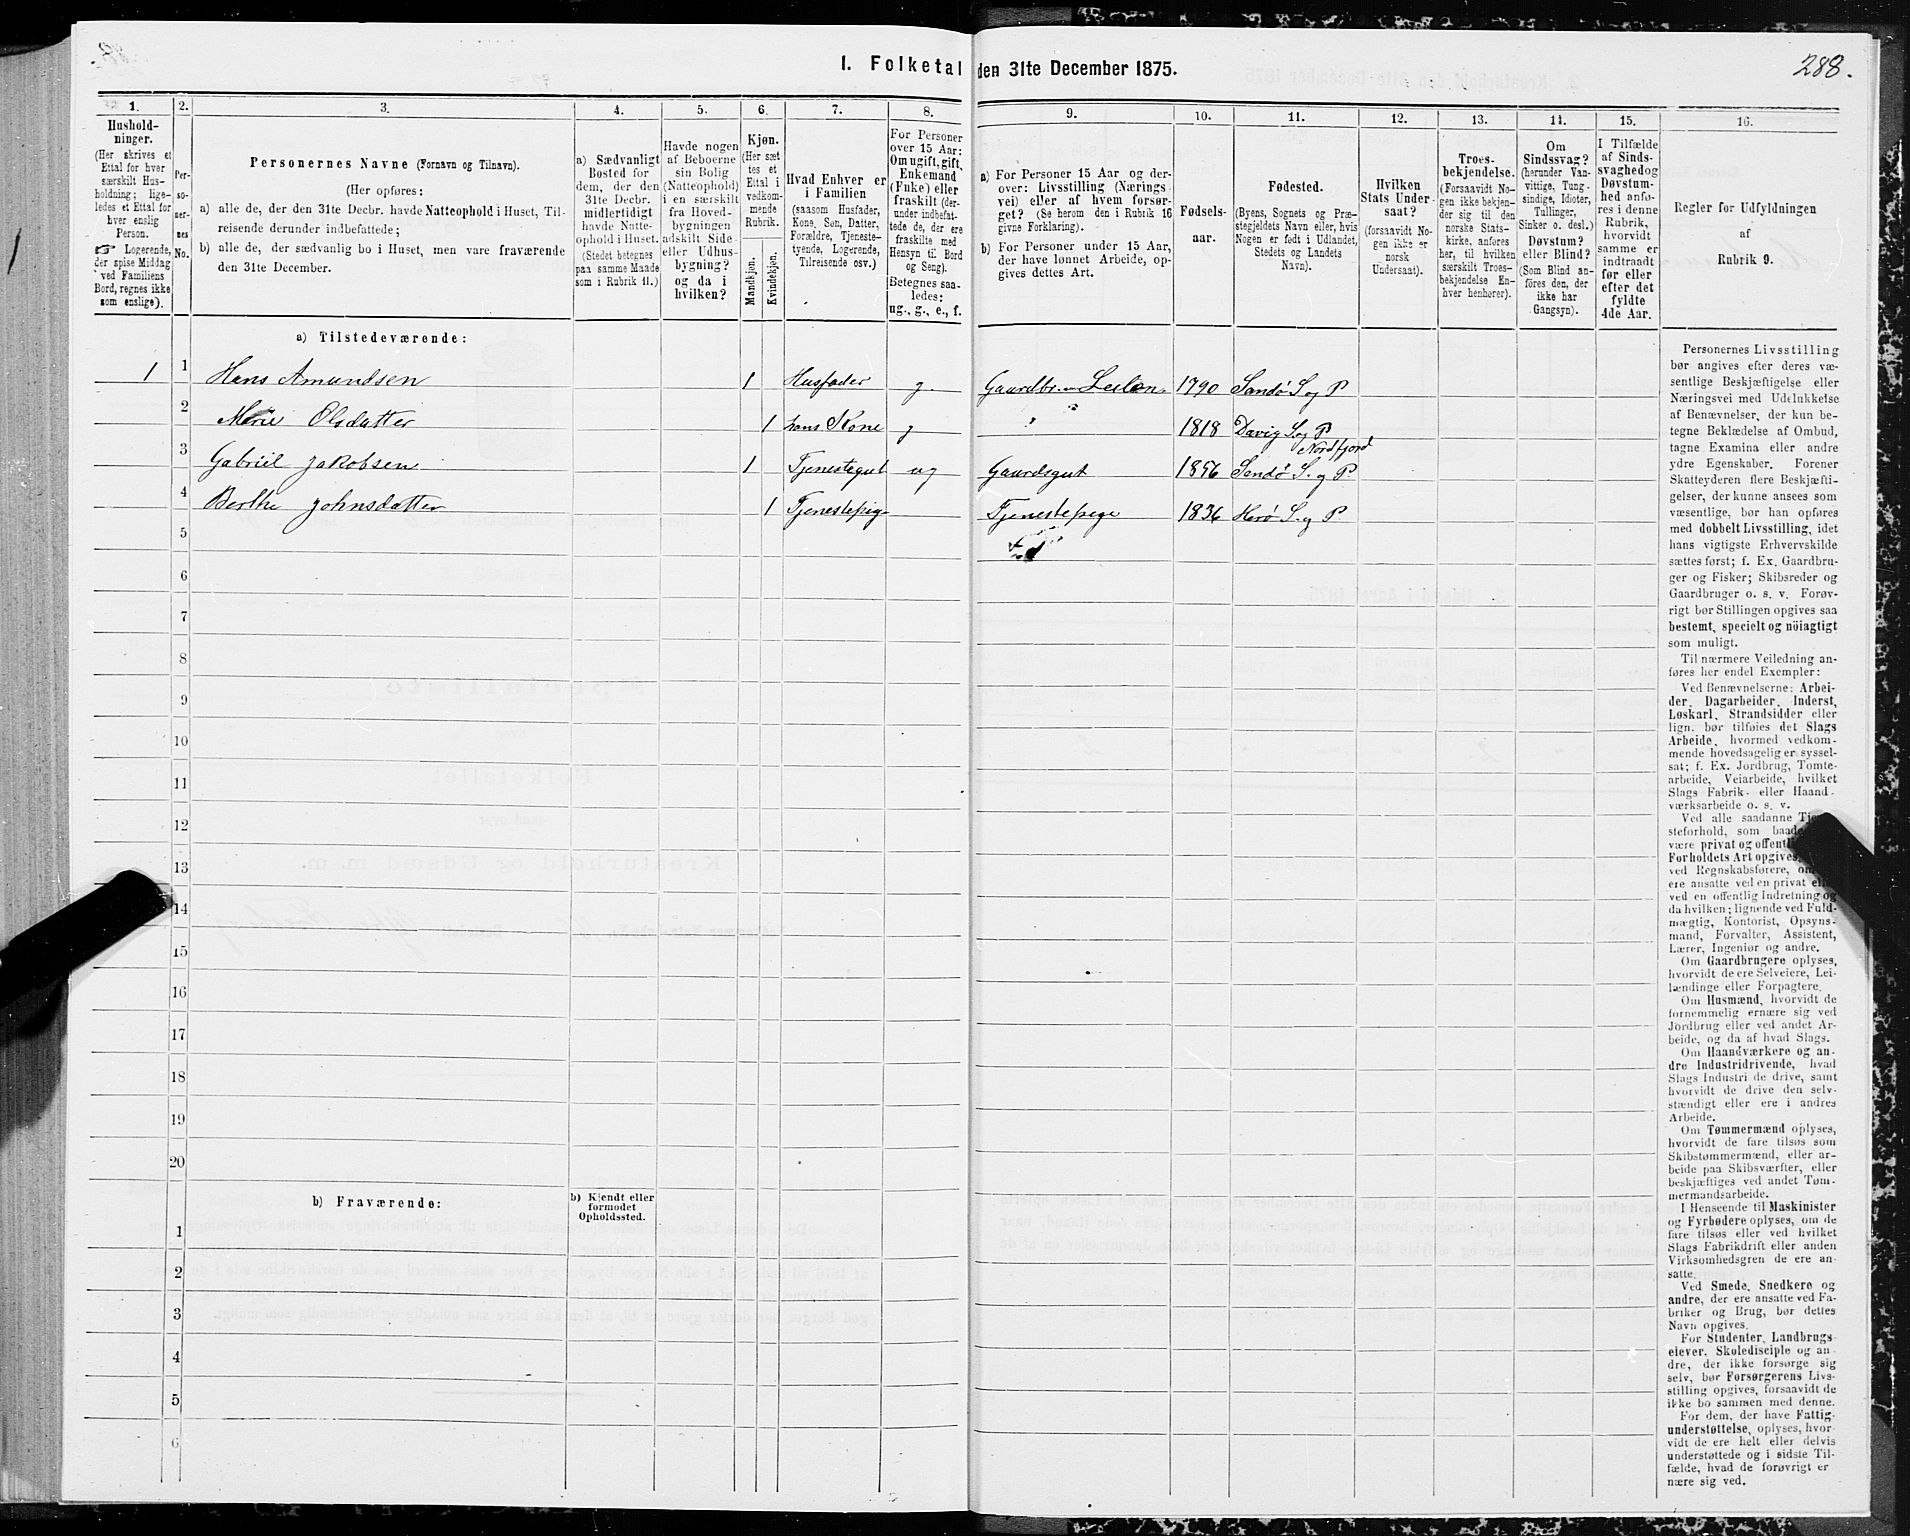 1. Folketal den 31te December 1875.
288.
1.
2.
3.
4.
5.
6.
7.
8.
9.
10.
11.
12.
13.
14.
15.
16.
Hushold-
ninger.
(Her skrives et
Ettal for hver
særskilt Hus-
holdning; lige-
ledes et Ettal for
hver enslig
Person.
☞ Logerende,
der spise Middag
ved Familiens
Bord, regnes ikke
som enslige).
Per-
so-
ner-
nes
No.
Personernes Navne (Fornavn og Tilnavn).
(Her opføres:
a) alle de, der den 31te Decbr. havde Natteophold i Huset, Til-
reisende derunder indbefattede;
b) alle de, der sædvanlig bo i Huset, men vare fraværende
den 31te December.
a) Sædvanligt
Bosted for
dem, der den
31te Decbr.
midlertidigt
havde Natte-
ophold i Huset.
(Stedet betegnes
paa samme Maade
som i Rubrik 11.)
Havde nogen
af Beboerne
sin Bolig
(Natteophold)
i en særskilt
fra Hoved-
bygningen
adskilt Side-
eller Udhus-
bygning?
og da i
hvilken?
Kjøn.
(Her sæt-
tes et
Ettal i
vedkom-
mende
Rubrik.
Mandkjøn.
Kvindekjøn.
Hvad Enhver er
i Familien
(saasom Husfader,
Kone, Søn, Datter,
Forældre, Tjeneste-
tyende, Logerende,
Tilreisende osv.)
For Personer
over 15 Aar:
Om ugift, gift,
Enkemand
(Enke) eller
fraskilt (der-
under indbefat-
tede de, der ere
fraskilte med
Hensyn til Bord
og Seng).
Betegnes saa-
ledes:
ug., g., e., f.
a) For Personer 15 Aar og der-
over: Livsstilling (Nærings-
vei) eller af hvem forsør-
get? (Se herom den i Rubrik 16
givne Forklaring).
b) For Personer under 15 Aar,
der have lønnet Arbeide, op-
gives dettes Art.
Fødsels-
aar.
Fødested.
(Byens, Sognets og Præ-
stegjeldets Navn eller, hvis
Nogen er født i Udlandet,
Stedets og Landets
Navn).
Hvilken
Stats Under-
saat?
(forsaavidt No-
gen ikke er
norsk
Undersaat).
Troes-
bekjendelse.
(Forsaavidt No-
gen ikke bekjen-
der sig til den
norske Stats-
kirke, anføres
her, til hvilken
særskilt Troes-
bekjendelse En-
hver henhører).
Om
Sindssvag?
(herunder Van-
vittige, Tung-
sindige, Idioter,
Tullinger,
Sinker o. desl.)
Døvstum?
eller Blind?
(Som Blind an-
føres den, der
ikke har
Gangsyn).
I Tilfælde
af Sinds-
svaghed og
Døvstum-
hed anfø-
res i denne
Rubrik,
hvorvidt
samme er
indtraadt
før eller
efter det
fyldte
4de Aar.
Regler for Udfyldningen
af
Rubrik 9.
a) Tilstedeværende:
1 1 Hans Amundsen 1 Husfader g. Gaardbr. Leilen. 1790 Sandø S. og P
2 Marie Olsdatter 1 hans Kone g " " 1818 Davig S. og P.
Nordfjord
3 Gabriel Jakobsen 1 Tjenestegut ug Gaardsgut 1856 Sandø S. og P.
4 Berthe Johnsdatter 1 Tjenestepig Tjenestepige 1836 Herø S. og P.
5
6
7
8
9
10
11
12
13
14
15
16
17
18
19
20
b) Fraværende:
b) Kjendt eller
formodet
Opholdssted.
1
2
3
4
5
6
Personernes Livsstilling
bør angives efter deres væ-
sentlige Beskjæftigelse eller
Næringsvei med Udelukkelse
af Benævnelser, der kun be-
tegne Beklædelse af Ombud,
tagne Examina eller andre
ydre Egenskaber. Forener
Skatteyderen flere Beskjæfti-
gelser, der kunne ansees som
væsentlige, bør han opføres
med dobbelt Livsstilling, idet
hans vigtigste Erhvervskilde
sættes først; f. Ex. Gaardbru-
ger og Fisker; Skibsreder og
Gaardbruger o. s. v. Forøv-
rigt bør Stillingen opgives saa
bestemt, specielt og nöiagtigt
som muligt.
Til nærmere Veiledning an-
føres her endel Exempler:
Ved Benævnelserne: Arbei-
der, Dagarbeider, Inderst,
Løskarl, Strandsidder eller
lign. bør tilføies det Slags
Arbeide, hvormed vedkom-
mende hovedsagelig er syssel-
sat; f. Ex. Jordbrug, Tomte-
arbeide, Veiarbeide, hvilket
Slags Fabrik- eller Haand-
værksarbeide o. s. v.
Ved alle saadanne
steforhold, som
være privat og
Forholdets Art opgives,
ved Regnskabsførere, om
ere ansatte ved en privat
ved en offentlig Indretning og
da hvilken; lignende ved Fuld-
mægtig, Kontorist, Opsyns-
mand, Forvalter, Assistent,
Lærer, Ingeniør og andre.
Om Gaardbrugere oplyses,
hvorvidt de ere Selveiere, Lei-
lændinge eller Forpagtere.
Om Husmænd, hvorvidt de
fornemmelig ernære sig ved
Jordbrug eller ved andet Ar-
beide, og da af hvad Slags.
Om Haandværkere og an-
dre Industridrivende, hvad
Slags Industri de drive, samt
hvorvidt de drive den selv-
stændigt eller ere i andres
Arbeide.
Om Tømmermænd oplyses,
hvorvidt de fare tilsøs som
Skibstømmermænd, eller ar-
beide paa Skibsværfter, eller
beskjæftiges ved andet Tøm-
mermandsarbeide.
I Henseende til Maskinister
og Fyrbødere oplyses, om de
fare tilsøs eller ved hvilket
Slags Fabrikdrift eller anden
Virksomhedsgren de ere an-
satte.
Ved Smede, Snedkere og
andre, der ere ansatte ved Fa-
briker og Brug, bør dettes
Navn opgives.
For Studenter, Landbrugs-
elever, Skoledisciple og an-
dre, der ikke forsørge sig
selv, bør Forsørgerens Livs-
stilling opgives, forsaavidt de
ikke bo sammen med denne.
For dem, der have Fattig-
understøttelse, oplyses, hvor-
vidt de ere helt eller delvis
understøttede og i sidste Til-
fælde, hvad de forøvrigt er-
nære sig ved.